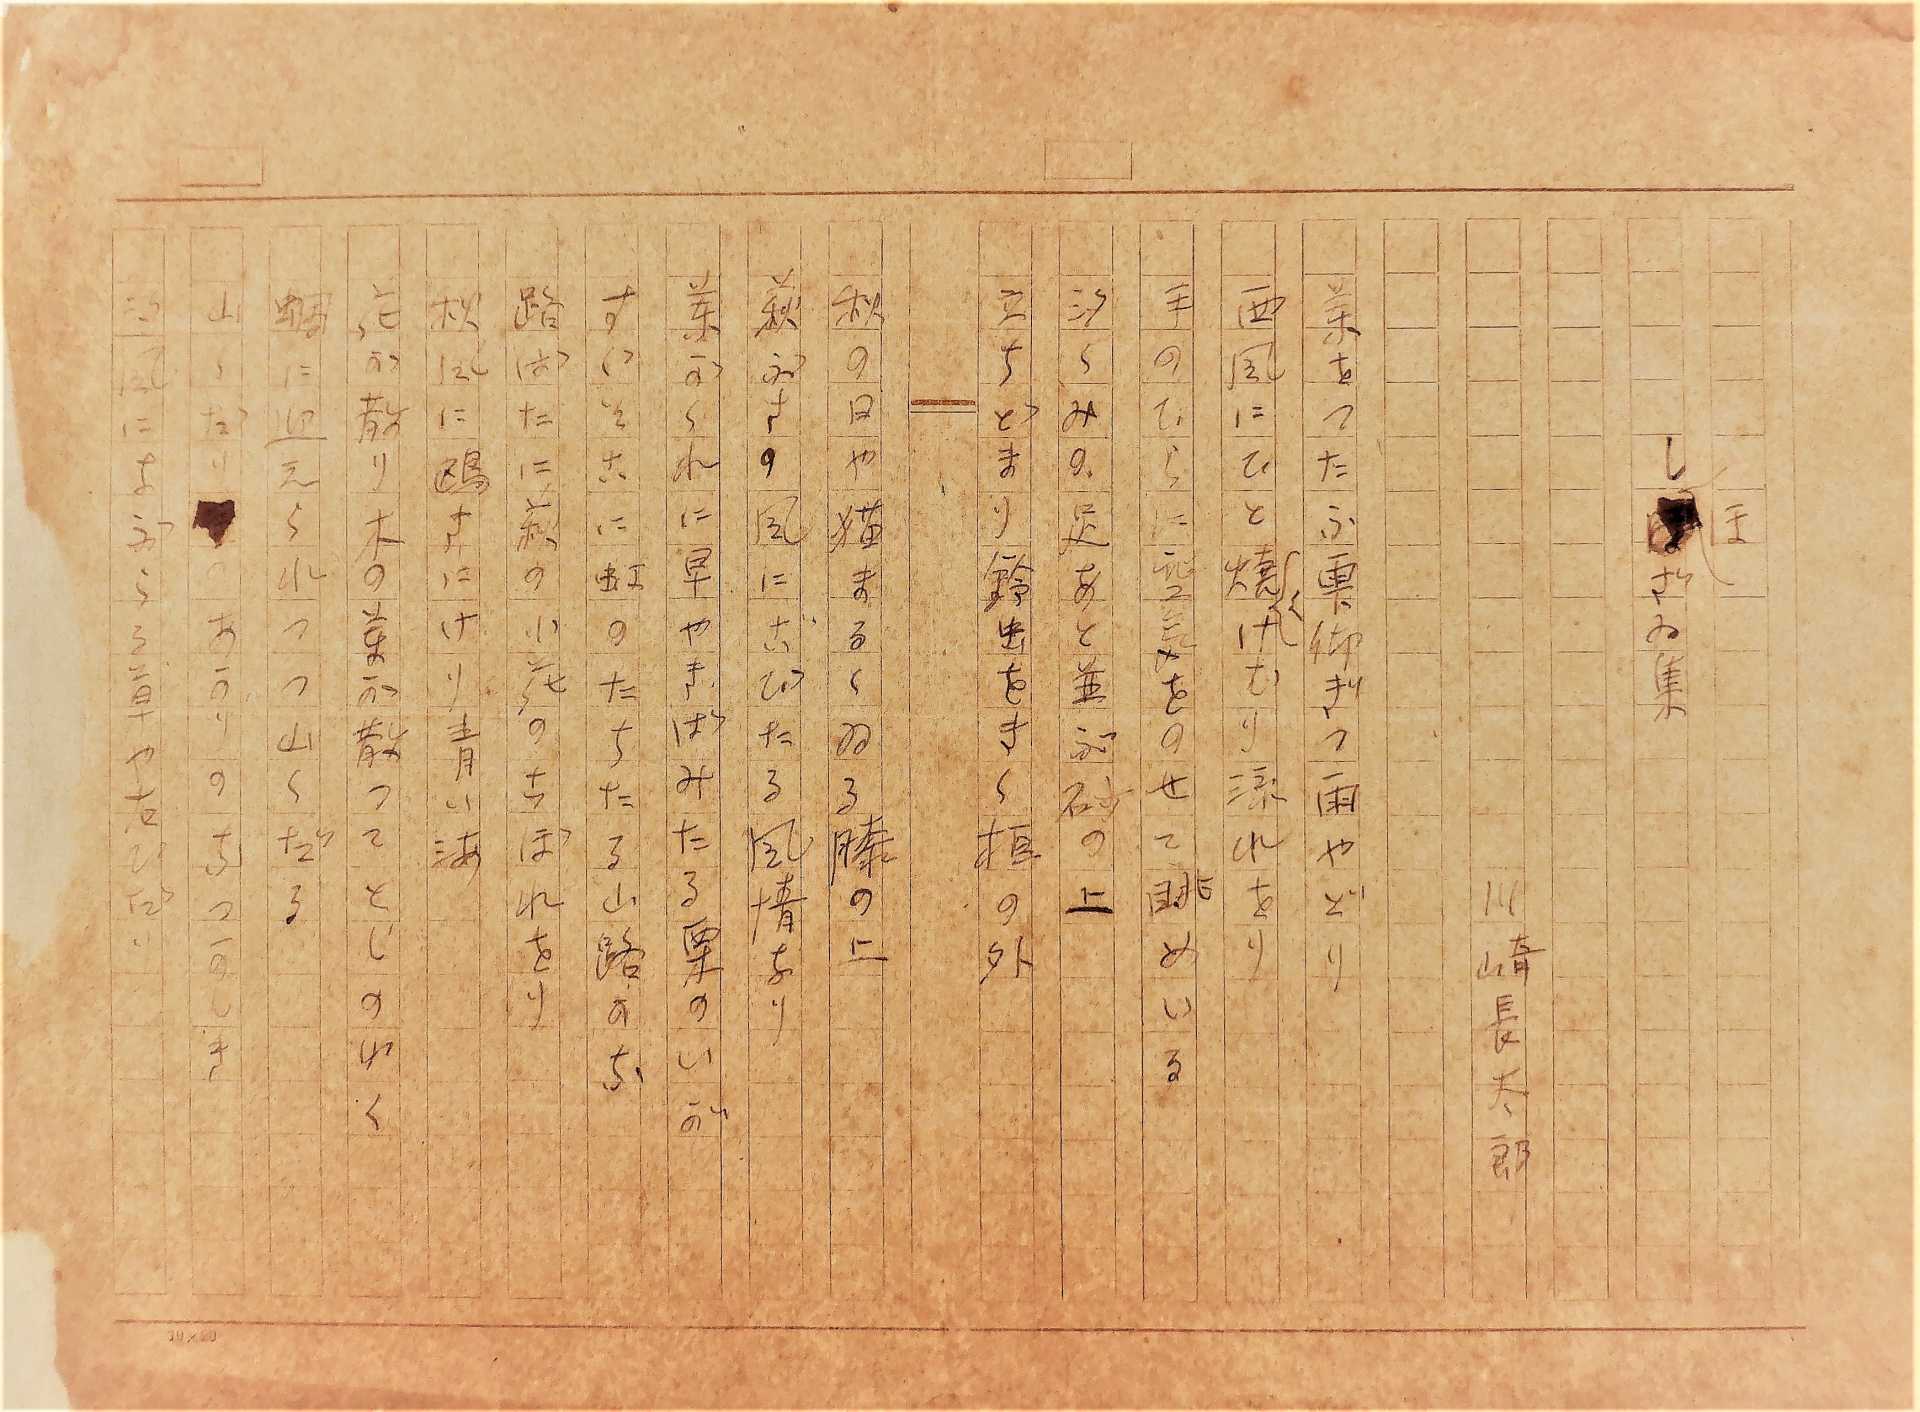 ほ
しざゐ集
川崎長太郎
葉をつたふ雫仰ぎつ雨やどり
西風にひと燒けむり流れをり
手のひらにをのせてめいる
汐くみの足あと並ぶ砂の上
立ちどまり鈴虫をきく垣の外
秋の日や猫まるくゐる膝の上
萩ぶさの風にこびたる風情なり
葉がくれに早やきばみたる栗のいが
すにそこに虹のたちたる山路かな
路ばたに萩の小花のこぼれをり
秋風に鴎なにけり青い海
花が散り木の葉が散つてとじのゆく
蜩に迎えられつつ山くだる
山くだりのあかりのなつかしき
風になぶらる草や